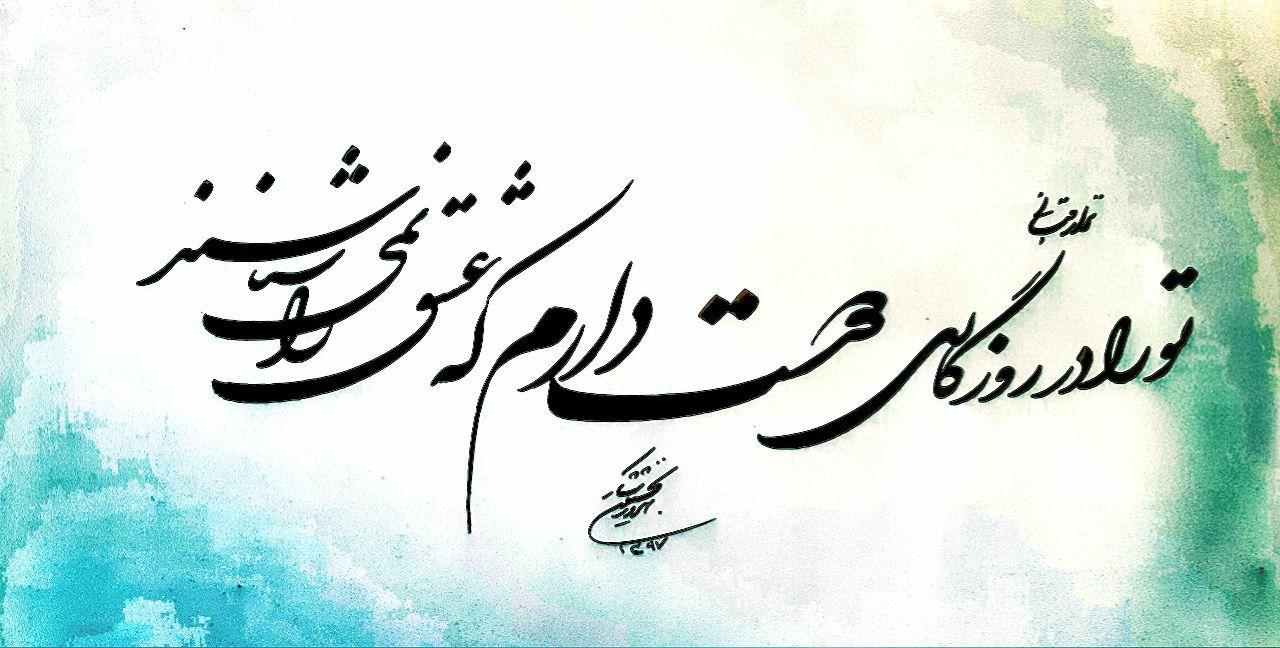 نزار قبانی
تو را در روزگاری دوست دارم که عشق را نمی‌شناسند
۱۳۹۷